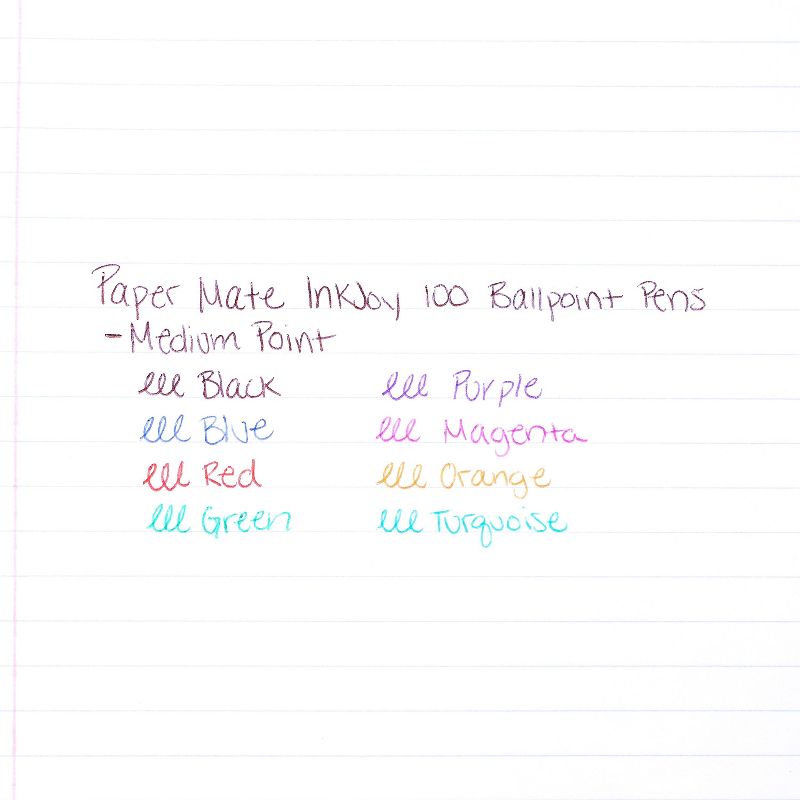 Paper Mate InkJoy 100 Ballpoint Pens
-Medium Point
lll Black lll Purple
lll Blue lll Magenta
lll Red lll Orange
lll Green lll Turquoise